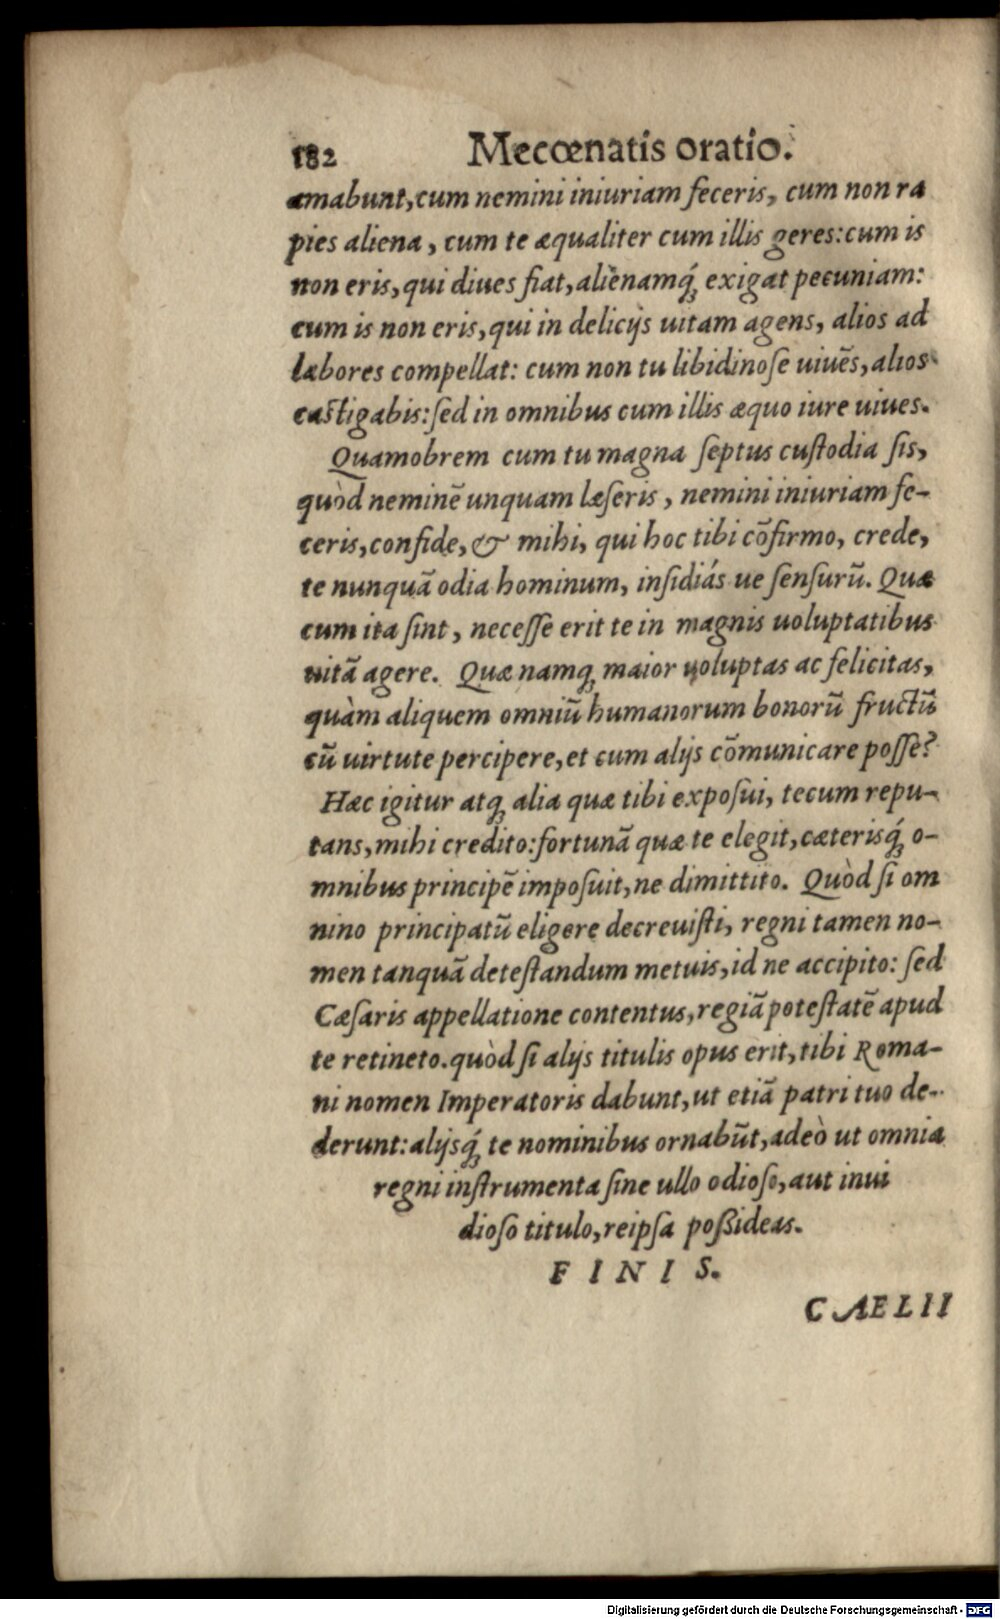 182 Mecœnatis oratio.
amabunt, cum nemini iniuriam feceris, cum non ra
pies aliena, cum te æqualiter cum illis geres: cum is
non eris, qui diues fiat, alienamq́ꝫ exigat pecuniam:
cum is non eris, qui in delicijs uitam agens, alios ad
labores compellat: cum non tu libidinoſe uiuēs, alios
caſtigabis: ſed in omnibus cum illis æquo iure uiues.
Quamobrem cum tu magna ſeptus cuſtodia ſis,
quòd neminē unquam læſeris, nemini iniuriam fe-
ceris, confide, & mihi, qui hoc tibi cōfirmo, crede,
te nunquā odia hominum, inſidiás ue ſenſurū. Quæ
cum ita ſint, neceſſe erit te in magnis uoluptatibus
uitā agere. Quæ namqꝫ maior uoluptas ac felicitas,
quàm aliquem omniū humanorum bonorū fructū
cū uirtute percipere, et cum alijs cōmunicare poſſe?
Hæc igitur atqꝫ alia quæ tibi expoſui, tecum repu-
tans, mihi credito: fortunā quæ te elegit, cæterisq́ꝫ o-
mnibus principē impoſuit, ne dimittito. Quòd ſi om
nino principatū eligere decreuiſti, regni tamen no-
men tanquā deteſtandum metuis, id ne accipito: ſed
Cæſaris appellatione contentus, regiā poteſtatē apud
te retineto. quòd ſi alijs titulis opus erit, tibi Roma-
ni nomen Imperatoris dabunt, ut etiā patri tuo de-
derunt: alijsq́ꝫ te nominibus ornabūt, adeò ut omnia
regni inſtrumenta ſine ullo odioſo, aut inui
dioſo titulo, reipſa poßideas.
F I N I S.
CAELII
Digitalisierung gefördert durch die Deutsche Forschungsgemeinschaft - DFG